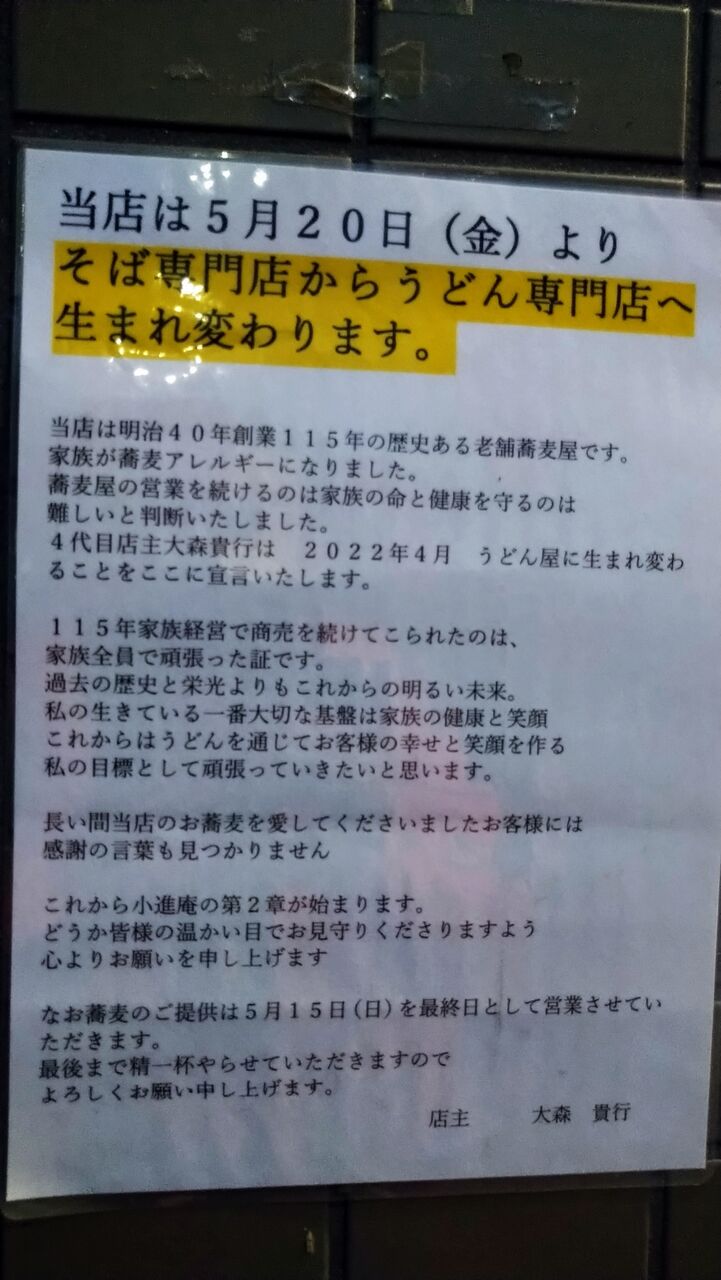 当店は５月２０日（金）より
そば専門店からうどん専門店へ
生まれ変わります。
当店は明治４０年創業１１５年の歴史ある老舗蕎麦屋です。
家族が蕎麦アレルギーになりました。
蕎麦屋の営業を続けるのは家族の命と健康を守るのは
難しいと判断いたしました。
４代目店主大森貴行は　２０２２年４月　うどん屋に生まれ変わ
ることをここに宣言いたします。
１１５年家族経営で商売を続けてこられたのは、
家族全員で頑張った証です。
過去の歴史と栄光よりもこれからの明るい未来。
私の生きている一番大切な基盤は家族の健康と笑顔
これからはうどんを通じてお客様の幸せと笑顔を作る
私の目標として頑張っていきたいと思います。
長い間当店のお蕎麦を愛してくださいましたお客様には
感謝の言葉も見つかりません
これから小進庵の第２章が始まります。
どうか皆様の温かい目でお見守りくださりますよう
心よりお願いを申し上げます
なお蕎麦のご提供は５月１５日（日）を最終日として営業させてい
ただきます。
最後まで精一杯やらせていただきますので
よろしくお願い申し上げます。
店主　　　大森　貴行